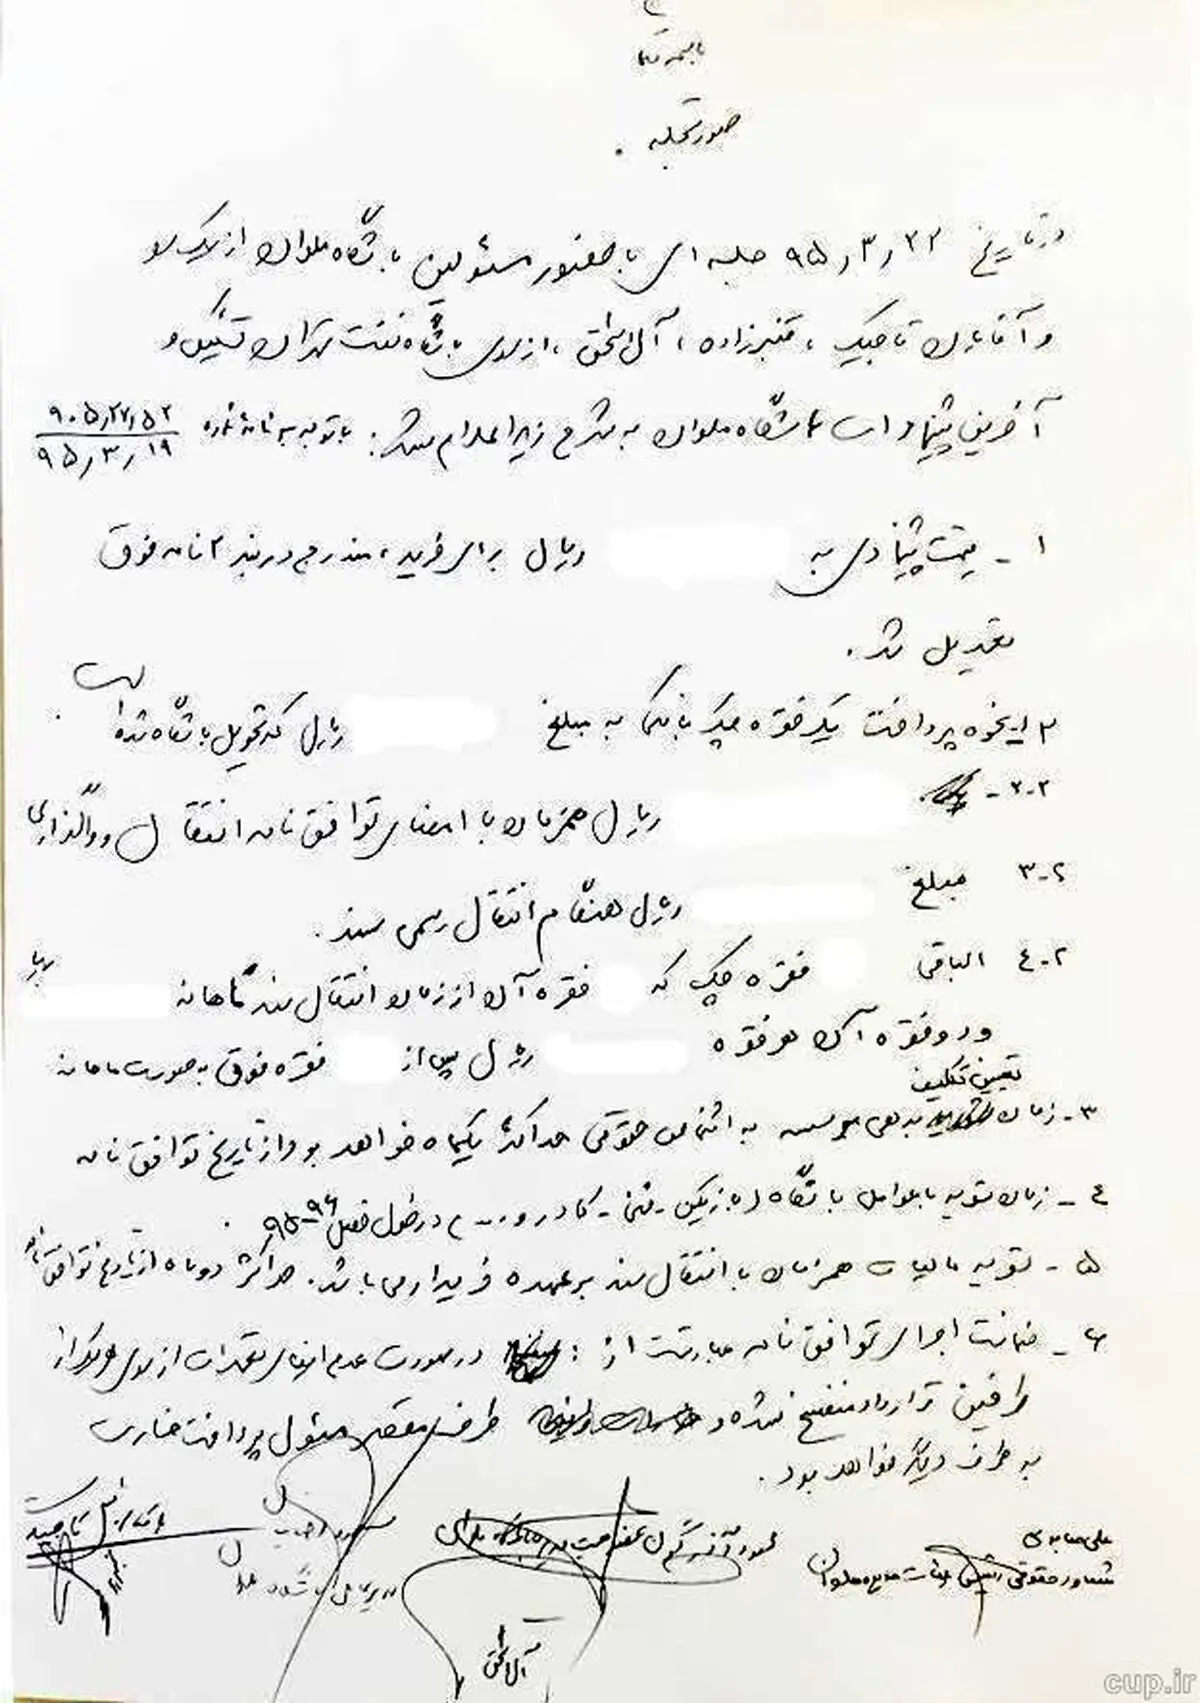 باسمه تعالی
صورتجلسه .
در تاریخ ۹۵٫۳٫۲۲ جلسه ای با حضور مسئولین باشگاه ملوان از یک سو
و آقایان تاجیک ، قنبرزاده ، آل اسحق ، از سوی باشگاه نفت تهران تشکیل و
آخرین پیشنهادات باشگاه ملوان به شرح زیر اعلام میشود : با توجه به نامه شماره
۹۵٫۳٫۱۹
۱ - قیمت پیشنهادی به ریال برای خرید ، مندرج در بند ۲ نامه فوق
تعدیل شد .
۲ نحوه پرداخت یک فقره چک بانکی به مبلغ ریال که تحویل باشگاه شده است .
۲-۲- ریال همزمان با امضای توافق نامه انتقال و واگذاری
۳-۲ مبلغ ریال هنگام انتقال رسمی سند .
۴-۲ الباقی فقره چک که فقره آن از زمان انتقال سند ماهانه ریال
و دو فقره آن هر فقره ریال پس از فقره فوق به صورت ماهانه
تعیین تکلیف
۳- زمان بدهی به اشخاص حقوقی حداکثر یکماه خواهد بود از تاریخ توافق نامه
۴ - زمان تسویه با عوامل باشگاه (بازیکن - فنی - کادر و ... ) در طول فصل ۹۶-۹۵ .
۵ - تسویه مالیات همزمان با انتقال سند بر عهده خریدار می باشد . حداکثر دو ماه از تاریخ توافق نامه
۶ - ضمانت اجرای توافق نامه عبارتست از : در صورت عدم ایفای تعهدات از سوی هر یک از
طرفین قرارداد منفسخ شده و طرف مقصر مسئول پرداخت خسارت
به طرف دیگر خواهد بود .
تاجیک
مدیرعامل باشگاه
علی
مشاور حقوقی ملوان
آل اسحق
cup.ir